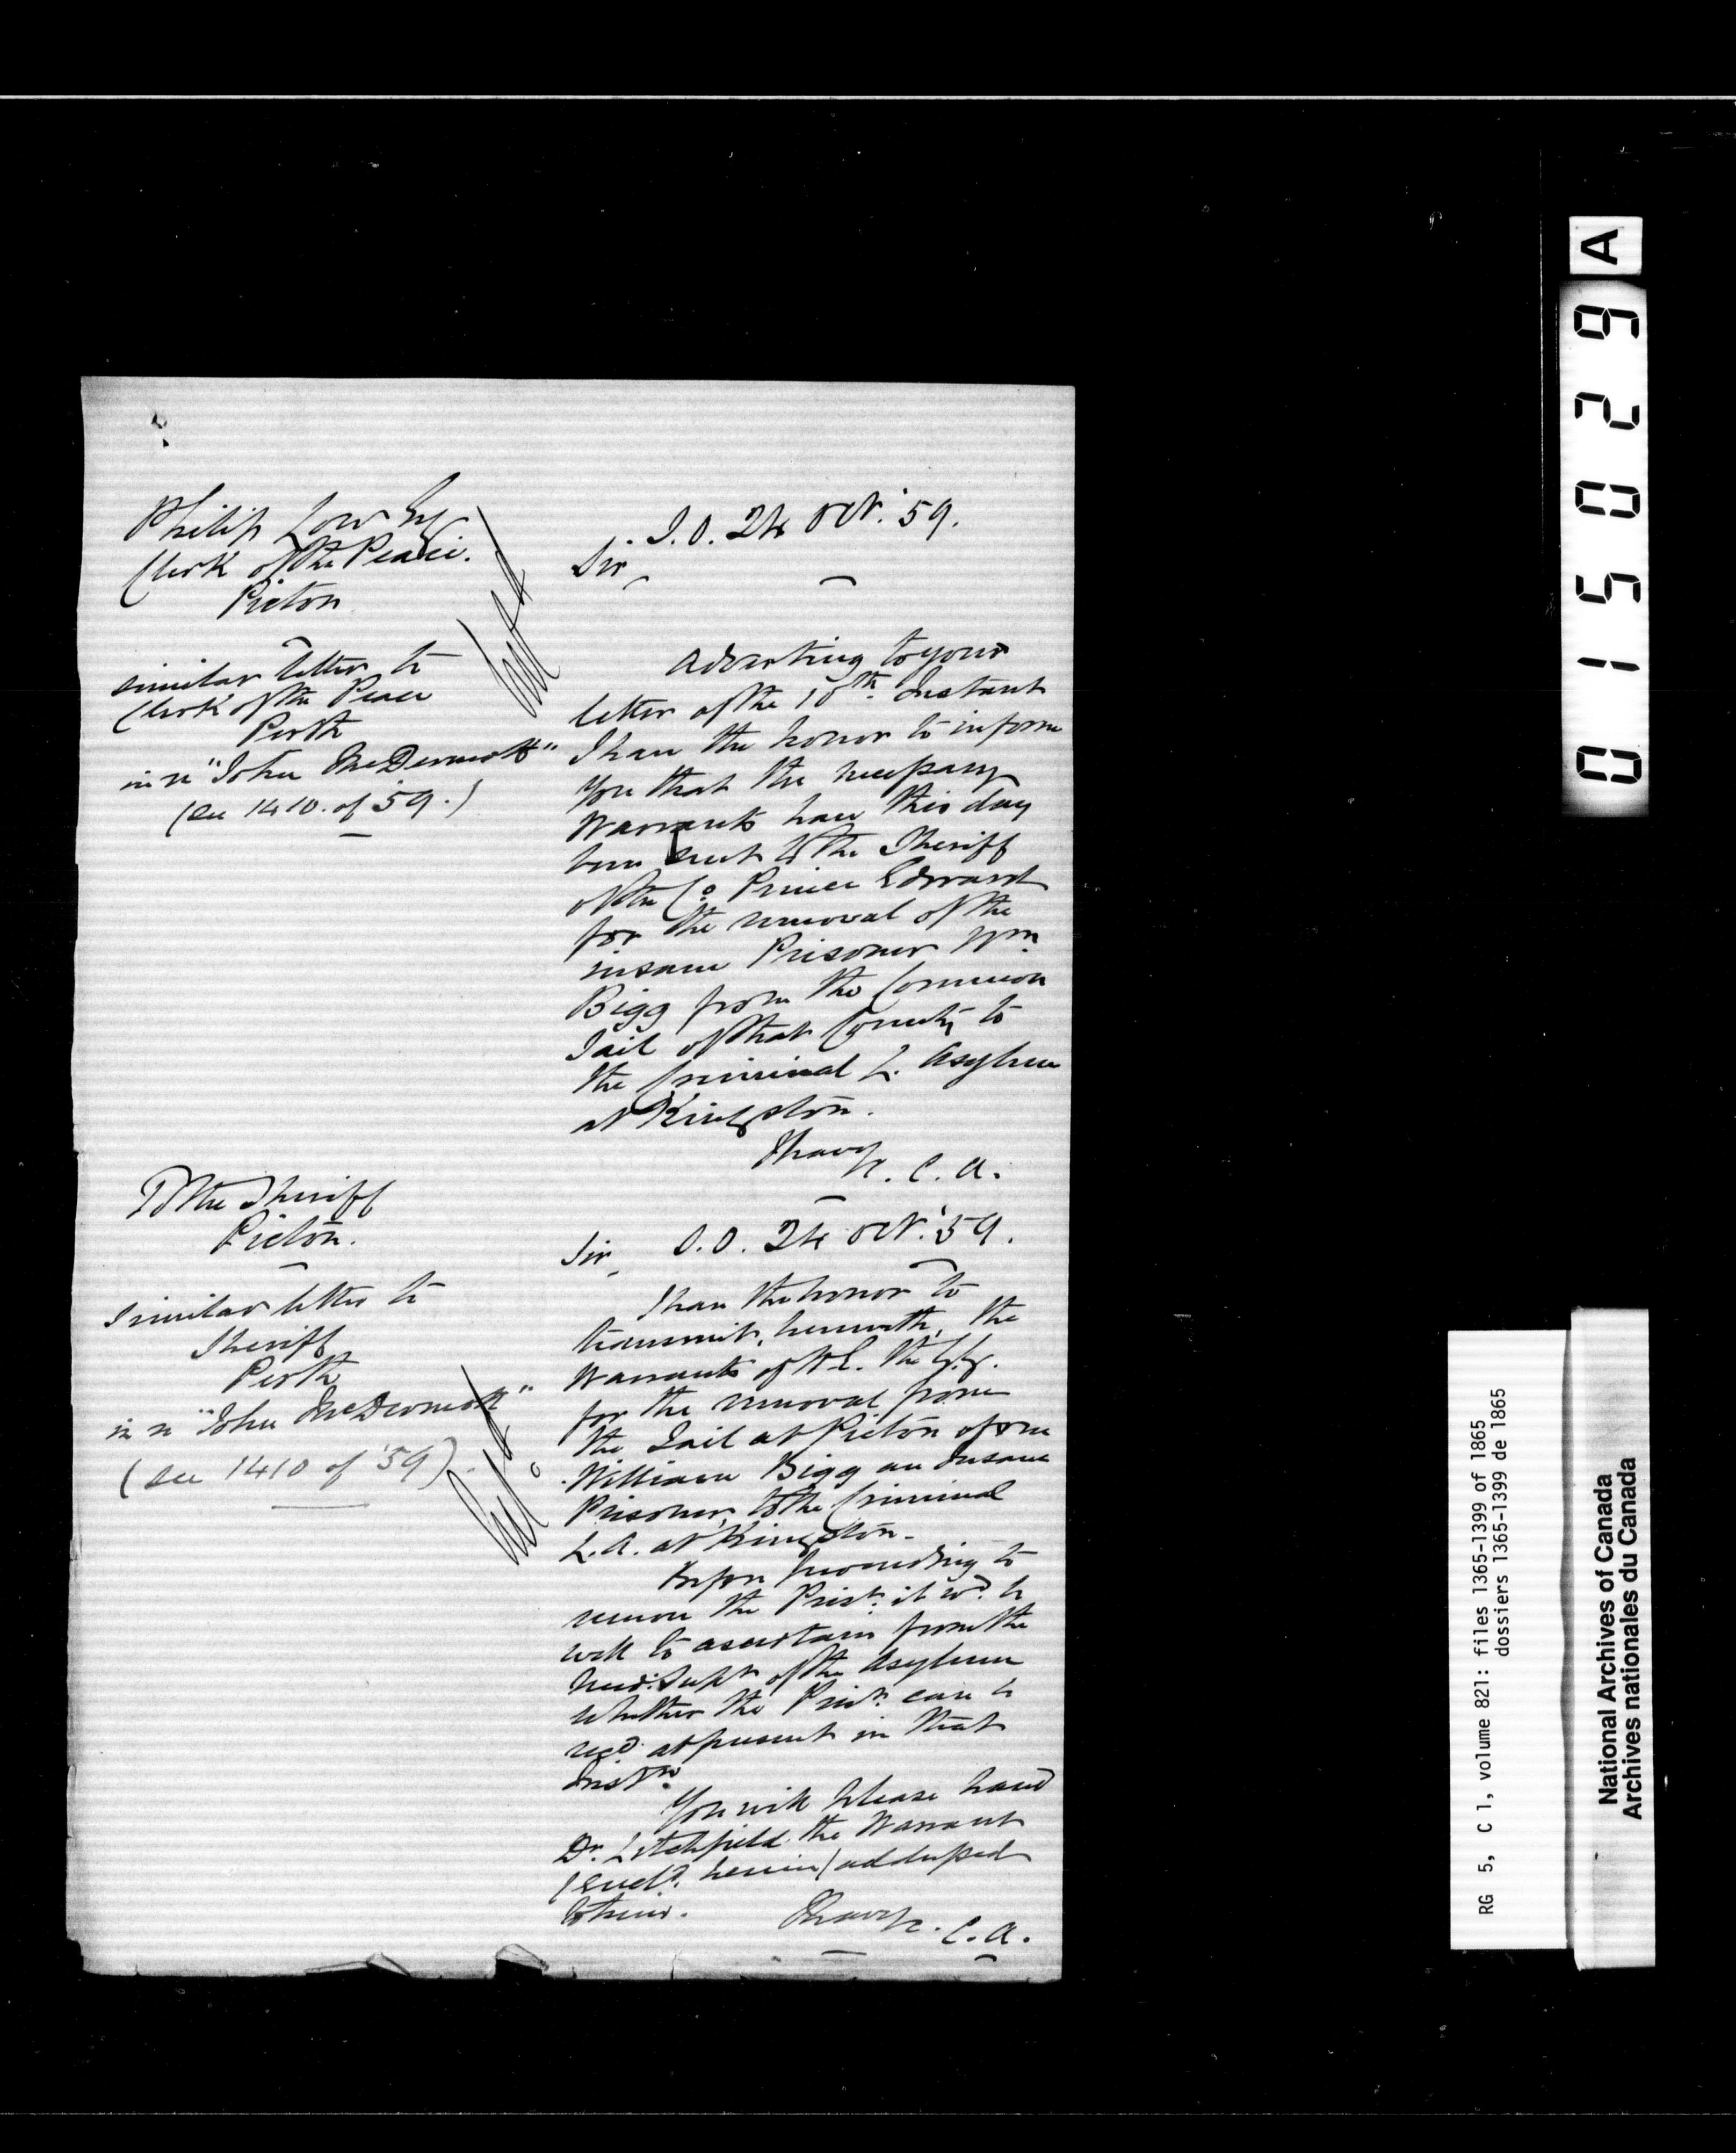 Philip Low Esq
Clerk of the Peace.
Picton
similar letter to
Clerk of the Peace
Perth
in re "John McDermott"
(see 1410. of '59.)
S.O. 24 Oct. '59.
Sir
Adverting to your
letter of the 10th Instant
I have the honor to inform
you that the necessary
Warrants have this day
been sent to the Sheriff
of the Co Prince Edward
for the removal of the
insane Prisoner Wm
Bigg from the Common
Jail of that County to
the Criminal L. Asylum
at Kingston.
I have &c.
C. A.
To the Sheriff
Picton.
Similar letter to
Sheriff
Perth
in re "John McDermott"
(see 1410 of '59)
S.O. 24 Oct. '59.
Sir
I have the honor to
transmit, herewith, the
Warrants of H.E. the G.G.
for the removal from
the Jail at Picton of one
William Bigg an Insane
Prisoner, to the Criminal
L.A. at Kingston.
Before proceeding to
remove the Prisr. it wd. be
well to ascertain from the
Med: Supt of the Asylum
whether the Prisr. can be
recd. at present in that
Instn.
You will please hand
Dr. Litchfield the Warrant
(encld. herein) addressed
to him.
I have &c.
C. A.
A
015029
RG 5, C 1, volume 821: files 1365-1399 of 1865
dossiers 1365-1399 de 1865
National Archives of Canada
Archives nationales du Canada